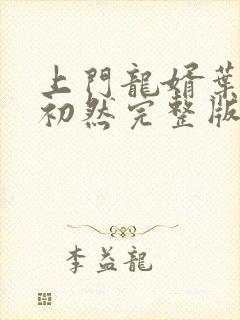 上門龍婿葉
初然完整版
李益龍